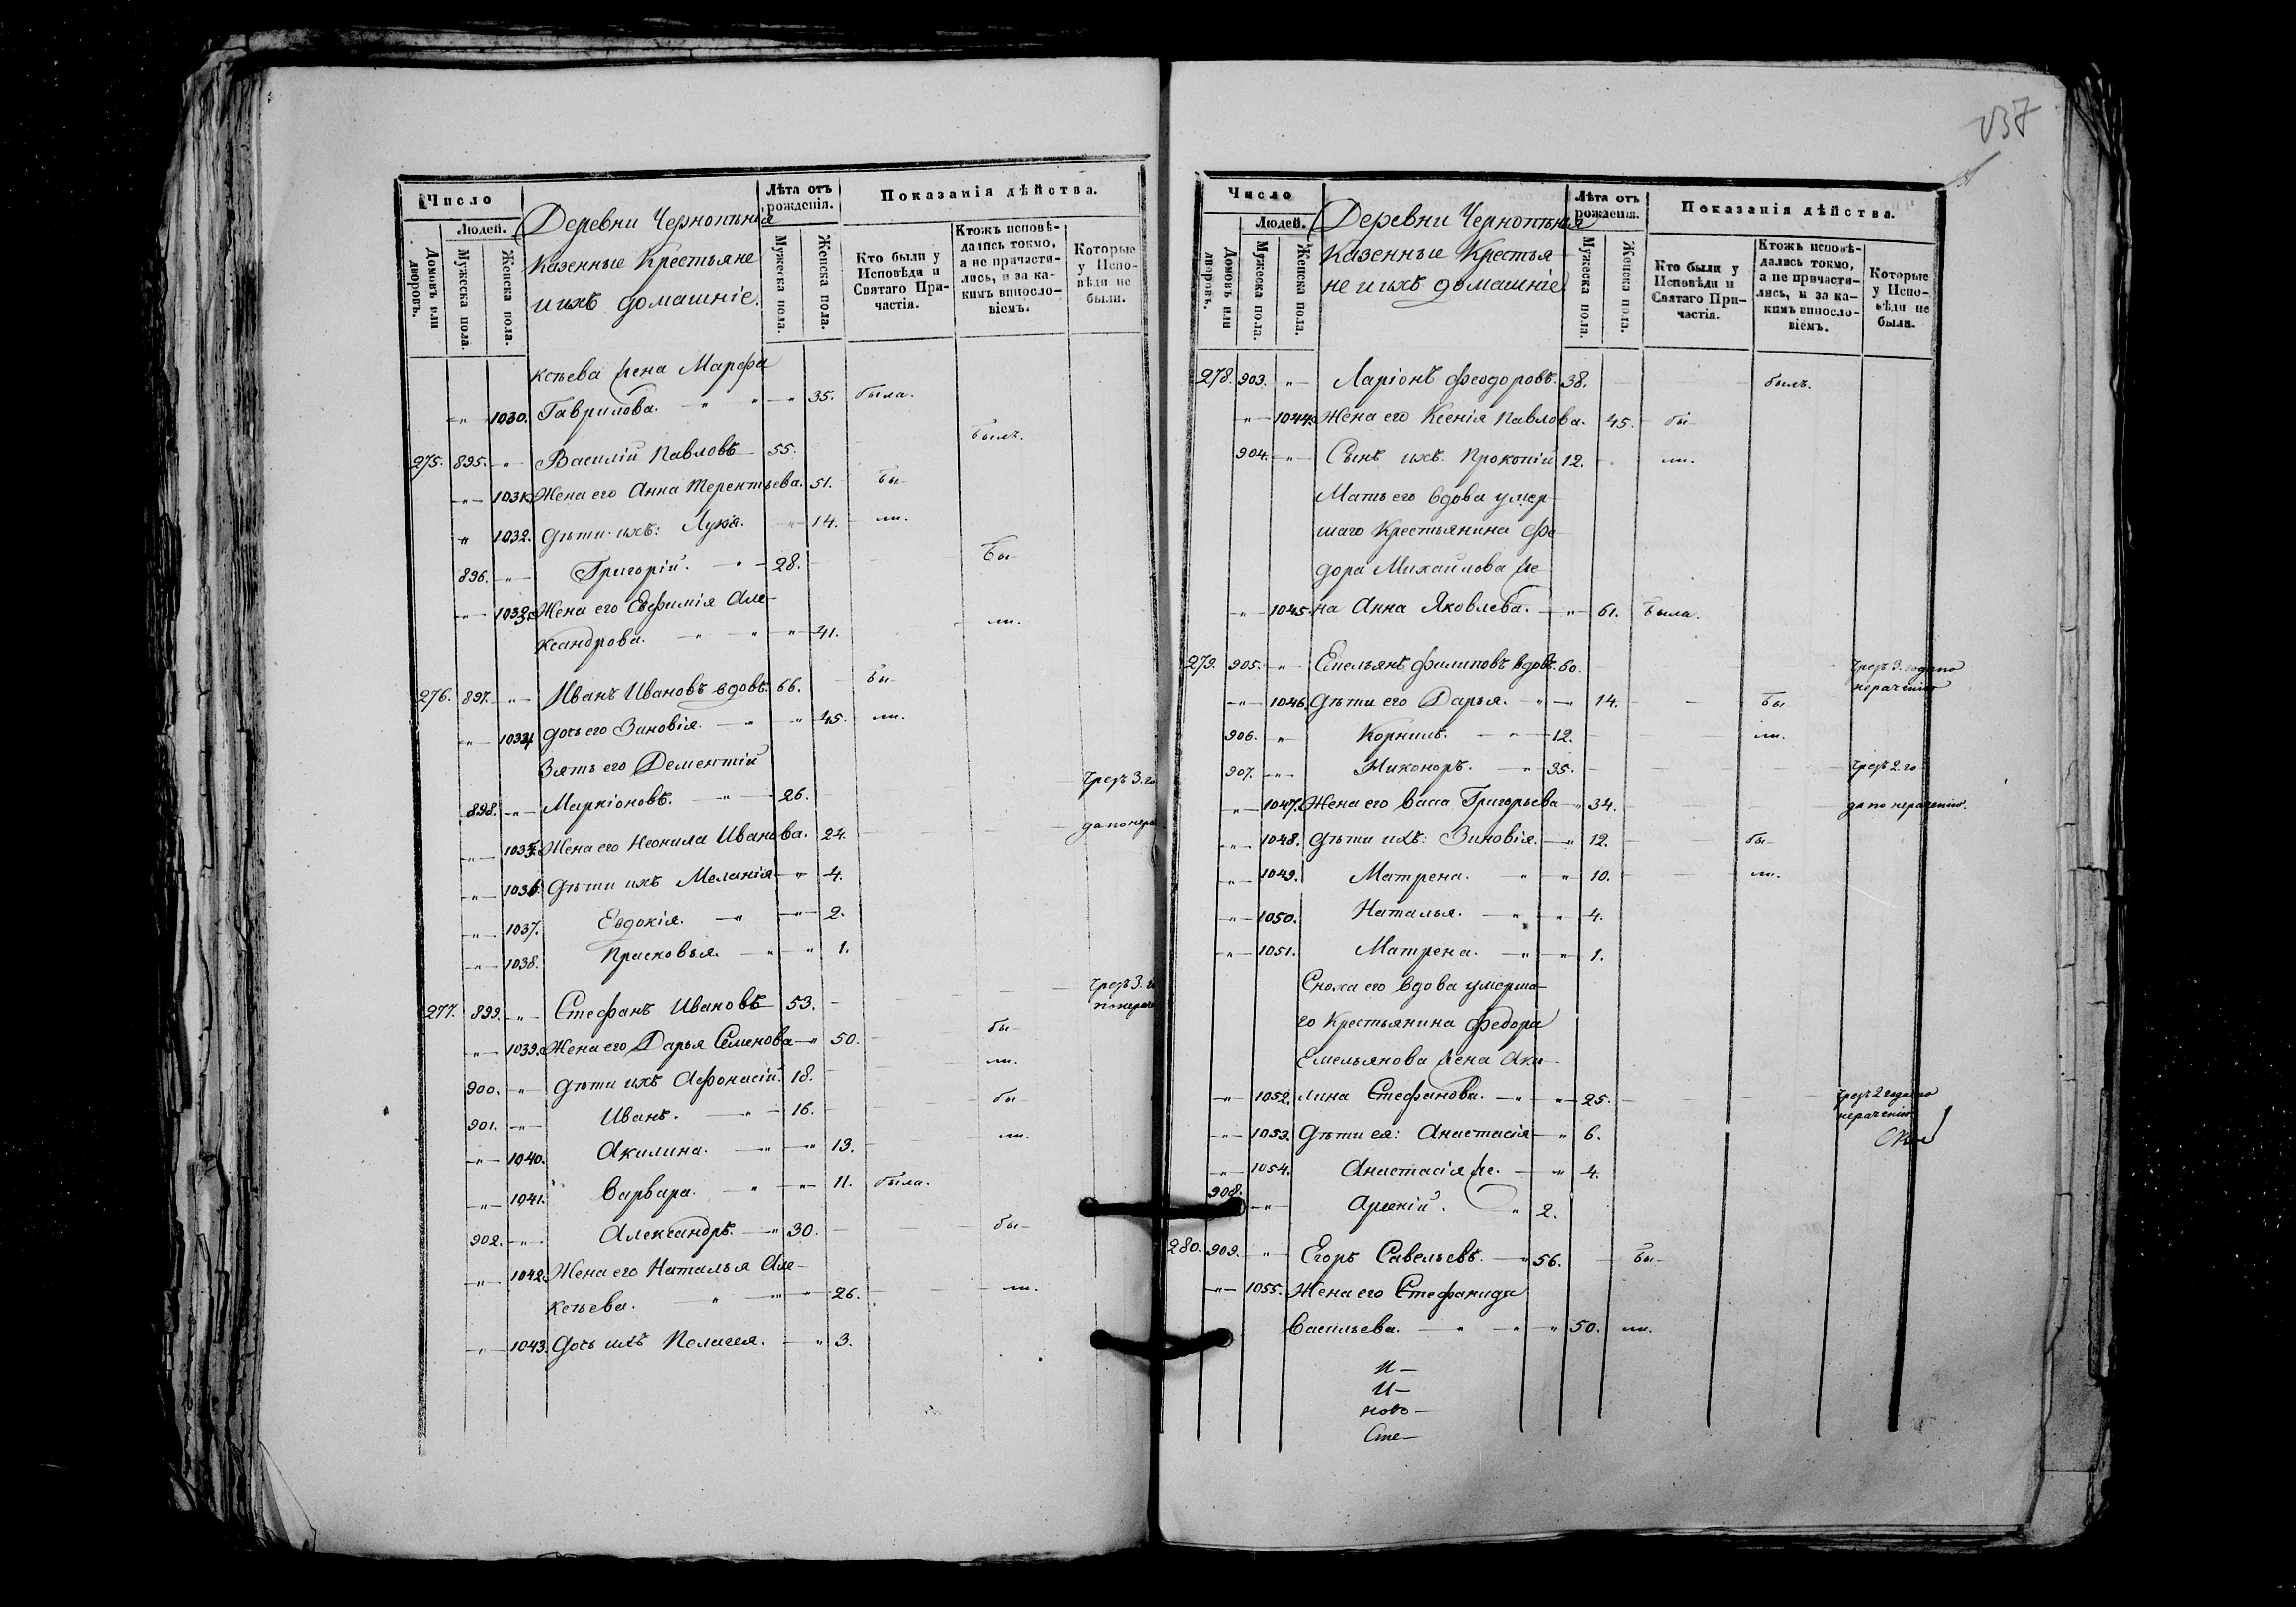 Число
Деревни Чернопенья
Лѣта отъ рожденія.
Показанія дѣйства.
Людей.
Казенные Крестьяне
и ихъ домашніе.
Домовъ или дворовъ.
Мужеска пола.
Женска пола.
Мужеска пола.
Женска пола.
Кто были у Исповѣди и Святаго Причастія.
Ктожъ исповѣдались токмо, а не причастились, и за какимъ винословіемъ.
Которые у Исповѣди не были.
ксѣева жена Марфа
1030. Гаврилова. 35. была.
275. 895. Василій Павловъ 55. былъ.
1031. Жена его Анна Терентьева. 51. бы-
1032. Дѣти ихъ: Лукія. 14. ли.
896. Григорій. 28. бы-
1033. Жена его Евфимія Але-
ксандрова. 41. ли.
276. 897. Иванъ Ивановъ вдовъ. 66. бы-
1034. Дочь его Зиновія. 45. ли.
Зять его Дементій
898. Маркіоновъ. 26. чрезъ 3. го
1035. Жена его Неонила Иванова. 24. да по нера
1036. Дѣти ихъ Меланія 4.
1037. Евдокія. 2.
1038. Прасковья. 1.
277. 899. Стефанъ Ивановъ 53. чрезъ 3. го
по нераче
1039. Жена его Дарья Семенова 50. бы-
900. Дѣти ихъ Афонасій. 18. ли.
901. Иванъ. 16. бы-
1040. Акилина. 13. ли.
1041. Варвара. 11. была.
902. Александръ. 30. бы-
1042. Жена его Наталья Але-
ксѣева. 26. ли.
1043. Дочь ихъ Пелагея. 3.
237
Число
Деревни Чернопенья
Лѣта отъ рожденія.
Показанія дѣйства.
Людей.
Казенные Крестья
не и ихъ домашніе.
Домовъ или дворовъ.
Мужеска пола.
Женска пола.
Мужеска пола.
Женска пола.
Кто были у Исповѣди и Святаго Причастія.
Ктожъ исповѣдались токмо, а не причастились, и за какимъ винословіемъ.
Которые у Исповѣди не были.
278. 903. Ларіонъ Феодоровъ. 38. былъ.
1044. Жена его Ксенія Павлова. 45. бы-
904. Сынъ ихъ Прокопій 12. ли.
Мать его вдова умер-
шаго Крестьянина Фе
дора Михайлова же
1045. на Анна Яковлева. 61. была.
279. 905. Емельянъ Филиповъ вдовъ. 60. чрезъ 3. года по
нераченію
1046. Дѣти его Дарья. 14. бы
906. Корнилъ. 12. ли.
907. Никоноръ. 35. чрезъ 2. го
1047. Жена его Васса Григорьева 34. да по нераченію.
1048. Дѣти ихъ: Зиновія. 12. бы-
1049. Матрена. 10. ли.
1050. Наталья. 4.
1051. Матрена. 1.
Сноха его вдова умерша-
го Крестьянина Федора
Емельянова жена Аки-
1052. лина Стефанова. 25. чрезъ 2 года по
нераченію
1053. Дѣти ея: Анастасія 6.
1054. Анастасія же. 4.
908. Арсеній. 2.
280. 909. Егоръ Савельевъ. 56. бы-
1055. Жена его Стефанида
Васильева. 50. ли.
И-
И-
ново-
Сте-